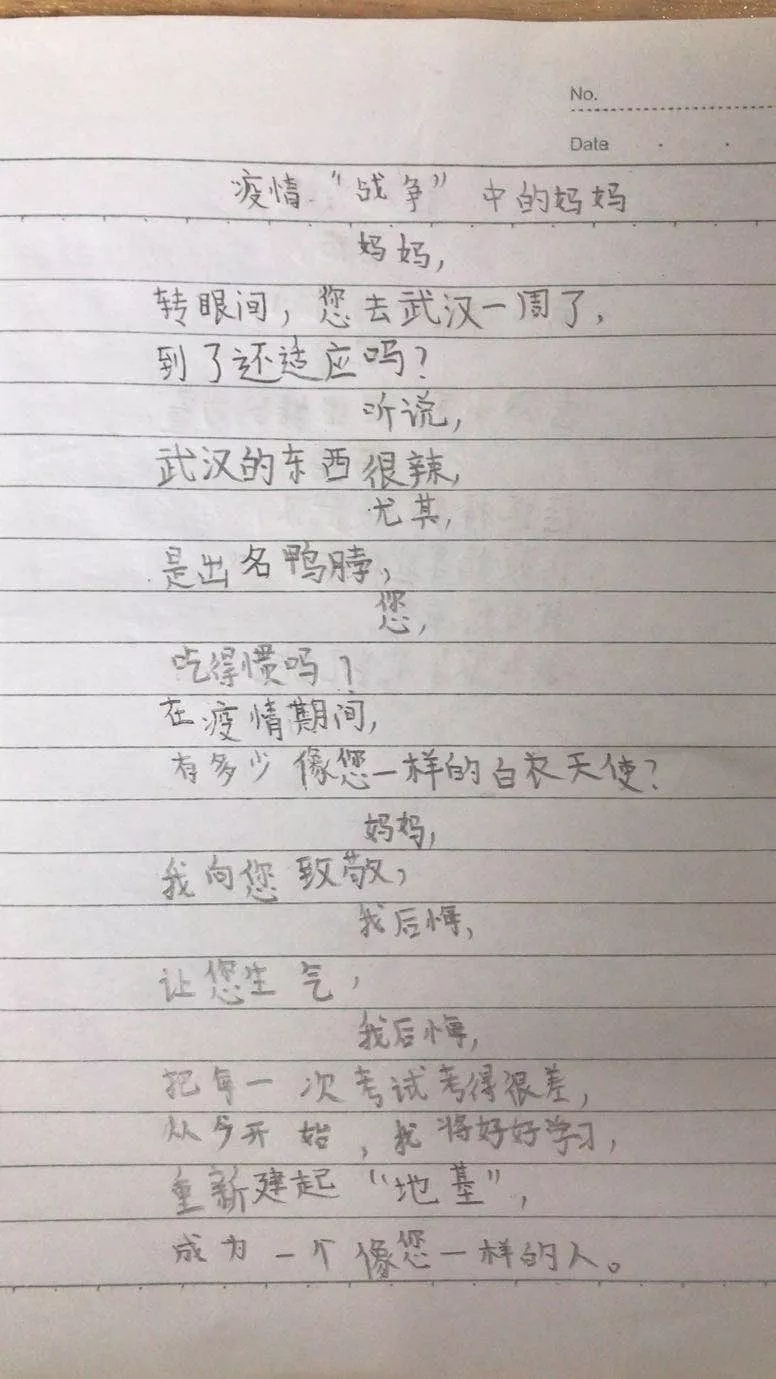 No.
Date
疫情"战争"中的妈妈
妈妈,
转眼间,您去武汉一周了,
到了还适应吗?
听说,
武汉的东西很辣,
尤其,
是出名鸭脖,
您,
吃得惯吗?
在疫情期间,
有多少像您一样的白衣天使?
妈妈,
我向您致敬,
我后悔,
让您生气,
我后悔,
把每一次考试考得很差,
从今开始,我将好好学习,
重新建起"地基",
成为一个像您一样的人。